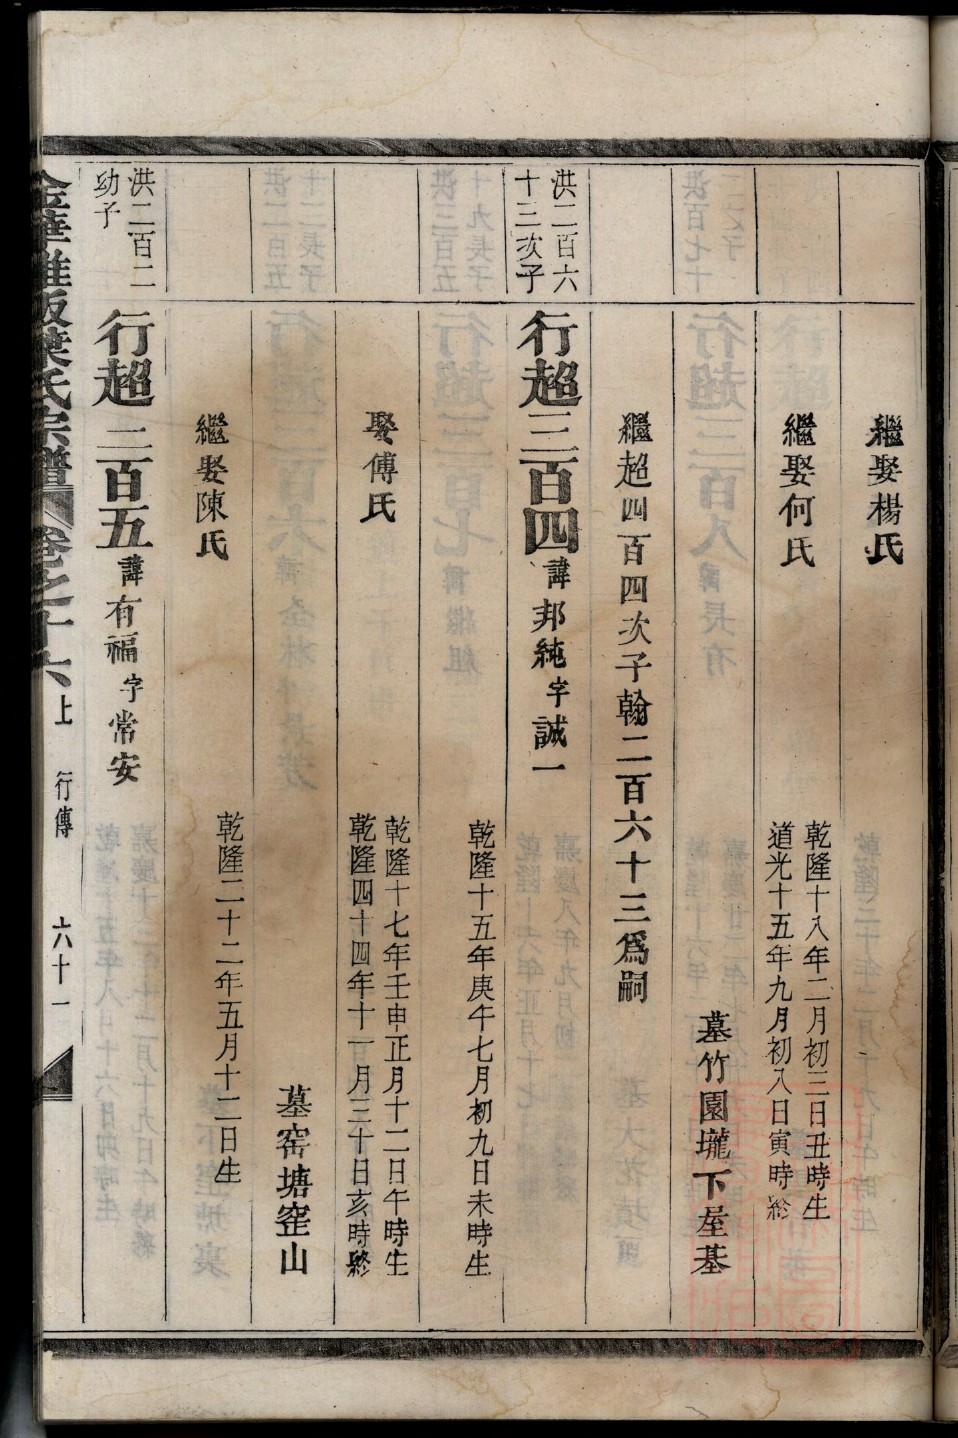 繼娶楊氏
繼娶何氏
乾隆十八年二月初三日丑時生
道光十五年九月初八日寅時終
墓竹園壠下屋基
繼超四百四次子翰二百六十三爲嗣
洪二百六
十三次子
行超三百四諱邦純字誠一
乾隆十五年庚午七月初九日未時生
娶傅氏
乾隆十七年壬申正月十二日午時生
乾隆四十四年十一月三十日亥時終
墓窑塘窐山
繼娶陳氏
乾隆二十二年五月十二日生
洪二百二
幼子
行超三百五諱有福字常安
葉氏宗譜 卷之十六上 行傳 六十一